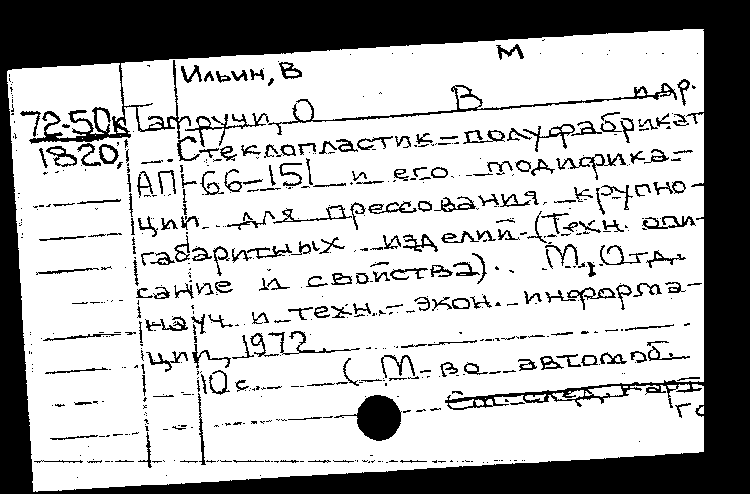 Ильин, В М
72-50к Татручи, О В и др.
1820, Стеклопластик-полуфабрикат
АП-66-151 и его модифика-
ции для прессования крупно-
габаритных изделий. (Техн. опи-
сание и свойства). М., Отд.
науч. и техн.-экон. информа-
ции, 1972.
10 с. (М-во автомоб.
См. след. карт